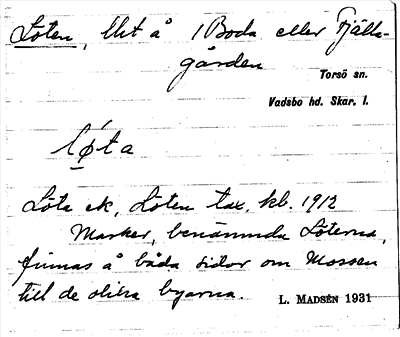 Löten, Utt å 1 Boda eller Fjälla-
gården
Torsö sn.
Vadsbo hd. Skar. l.
lø̄ta
Löta ek, Löten tax. kb. 1912
Marker, benämnda Löterna,
finnas å båda sidor om Mossen
till de olika byarna.
L. MADSÉN 1931